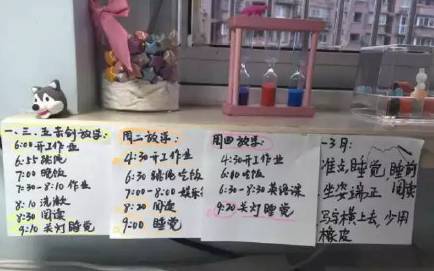 一、三、五去剑放学:
6:00 开工作业
6:45 跳绳
7:00 晚饭
7:30-8:10 作业
8:10 洗漱
8:30 阅读
9:10 关灯睡觉
周二放学:
4:30 开工作业
6:30 跳绳吃饭
7:00-8:00 娱乐
8:20 阅读
9:00 睡觉
周四放学:
4:30 开工作业
6:00 吃饭
6:30-8:30 英语课
9:20 关灯睡觉
一3月:
准点睡觉 睡前阅读
坐姿端正
写字横上去,少用
橡皮